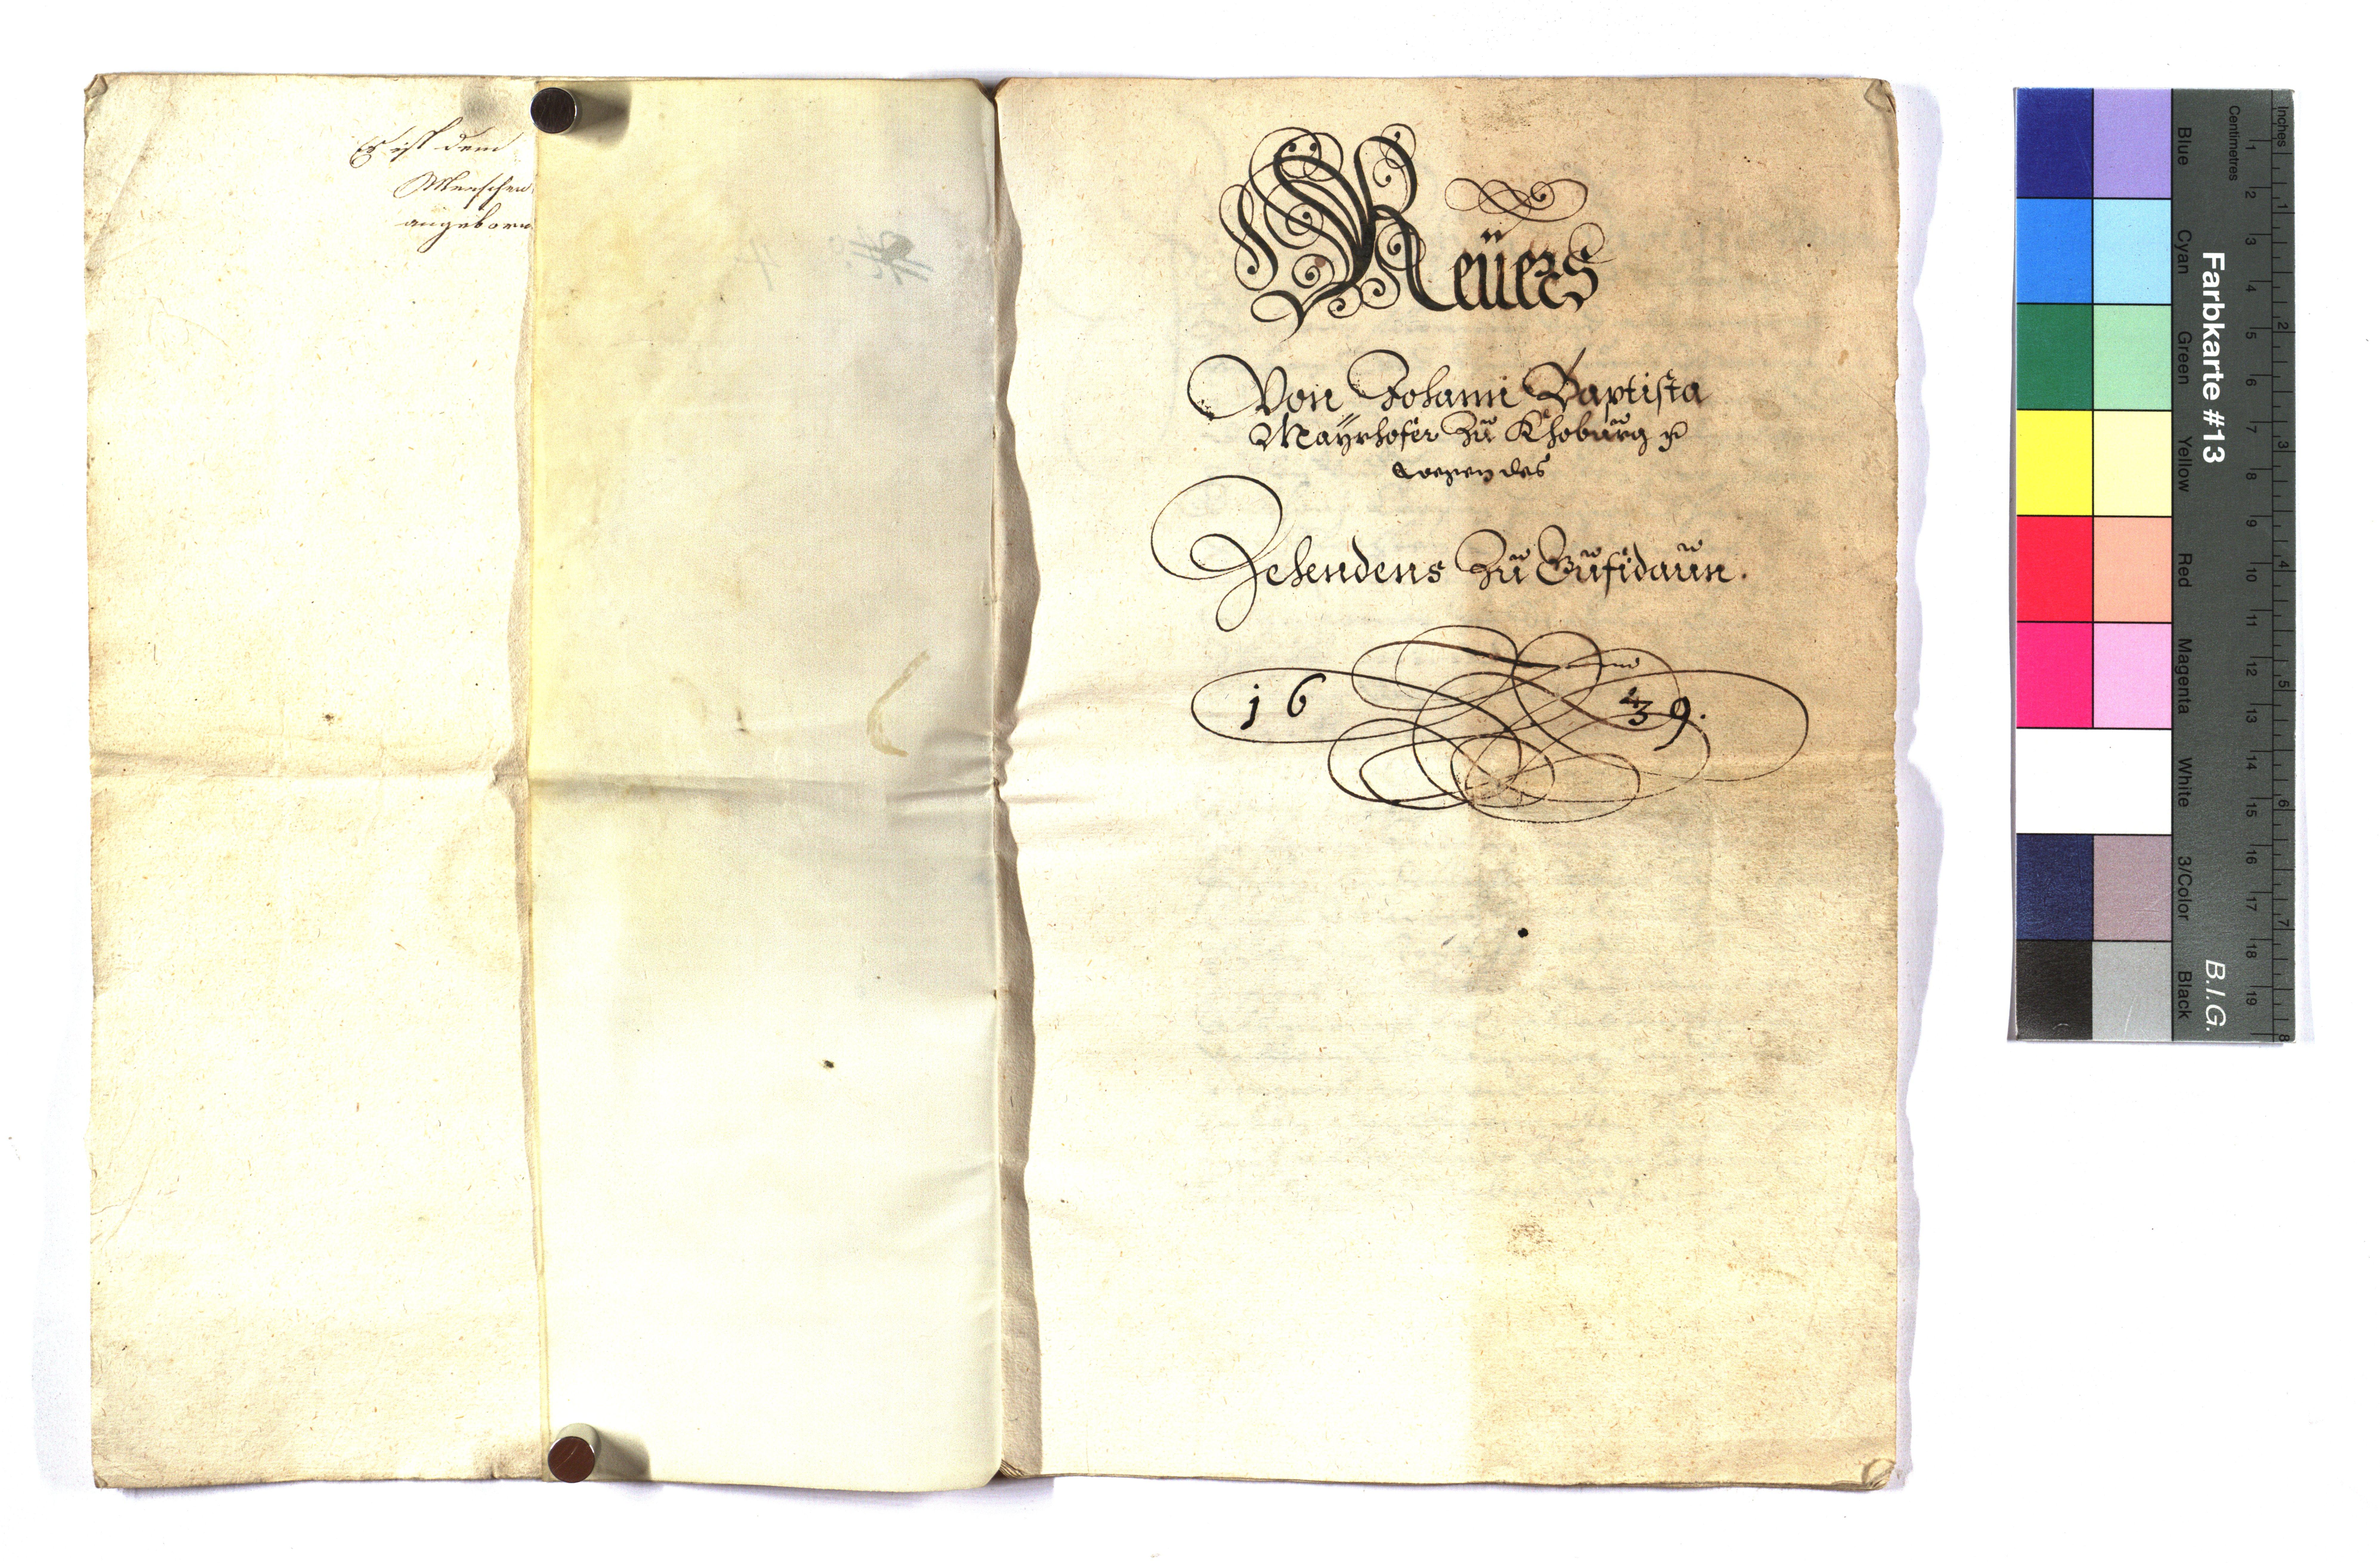 Es ist dem
Menschen
angeborn
Reüers
Von Johann Baptista
Mayrhofer Zu Khoburg
wegen des
Zehendens Zu Gufidaun.
16 39.
Farbkarte #13
B.I.G.
Inches
Centimetres
Blue
Cyan
Green
Yellow
Red
Magenta
White
3/Color
Black
1 2 3 4 5 6 7 8 9 10 11 12 13 14 15 16 17 18 19
1 2 3 4 5 6 7 8